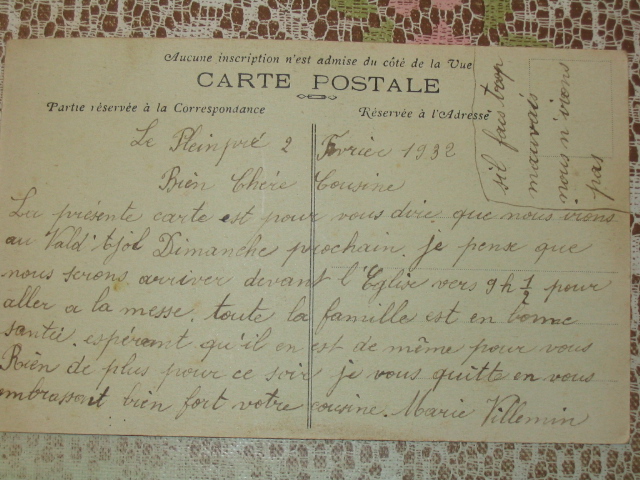 Aucune inscription n'est admise du côté de la Vue
CARTE POSTALE
Partie réservée à la Correspondance
Réservée à l'Adresse
Le Pleinpré 2 Fevrier 1932
Bien Chére Cousine
La présente carte est pour vous dire que nous irons
au Vald'Ajol Dimanche prochain. je pense que
nous serons arriver devant l'Eglise vers 9h ½ pour
aller a la messe. toute la famille est en bonne
santé. espérant qu'il en est de même pour vous
Rien de plus pour ce soir je vous quitte en vous
embrassant bien fort votre cousine. Marie Villemin
sil fais trop
mauvais
nous n'irons
pas